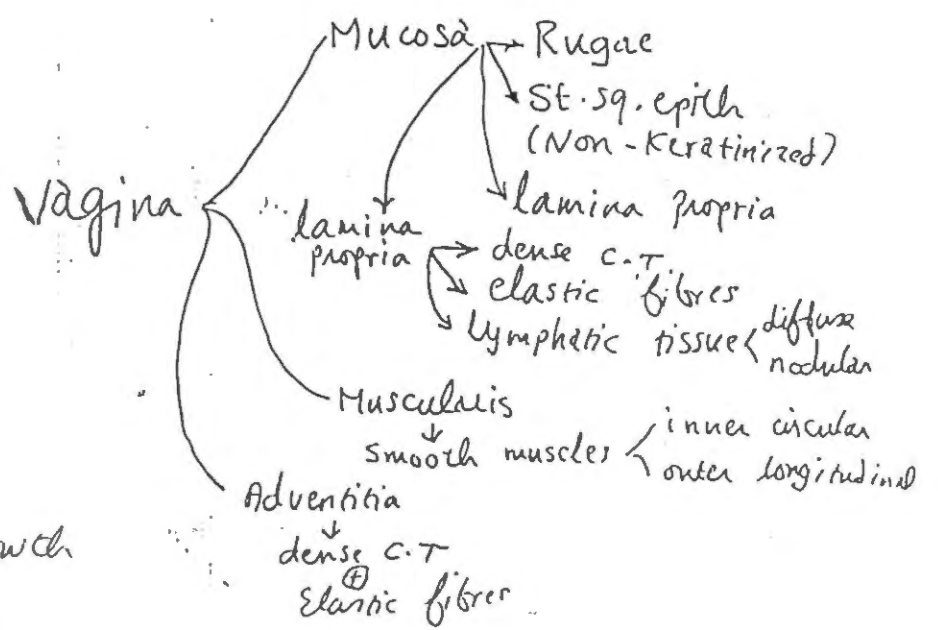 Mucosa → Rugae
St. sq. epith
(Non-Keratinized)
Vagina
lamina propria
lamina
propria
dense C.T
elastic fibres
lymphatic tissue
diffuse
nodular
Muscularis
smooth muscles
inner circular
outer longitudinal
Adventitia
dense C.T
+
Elastic fibres